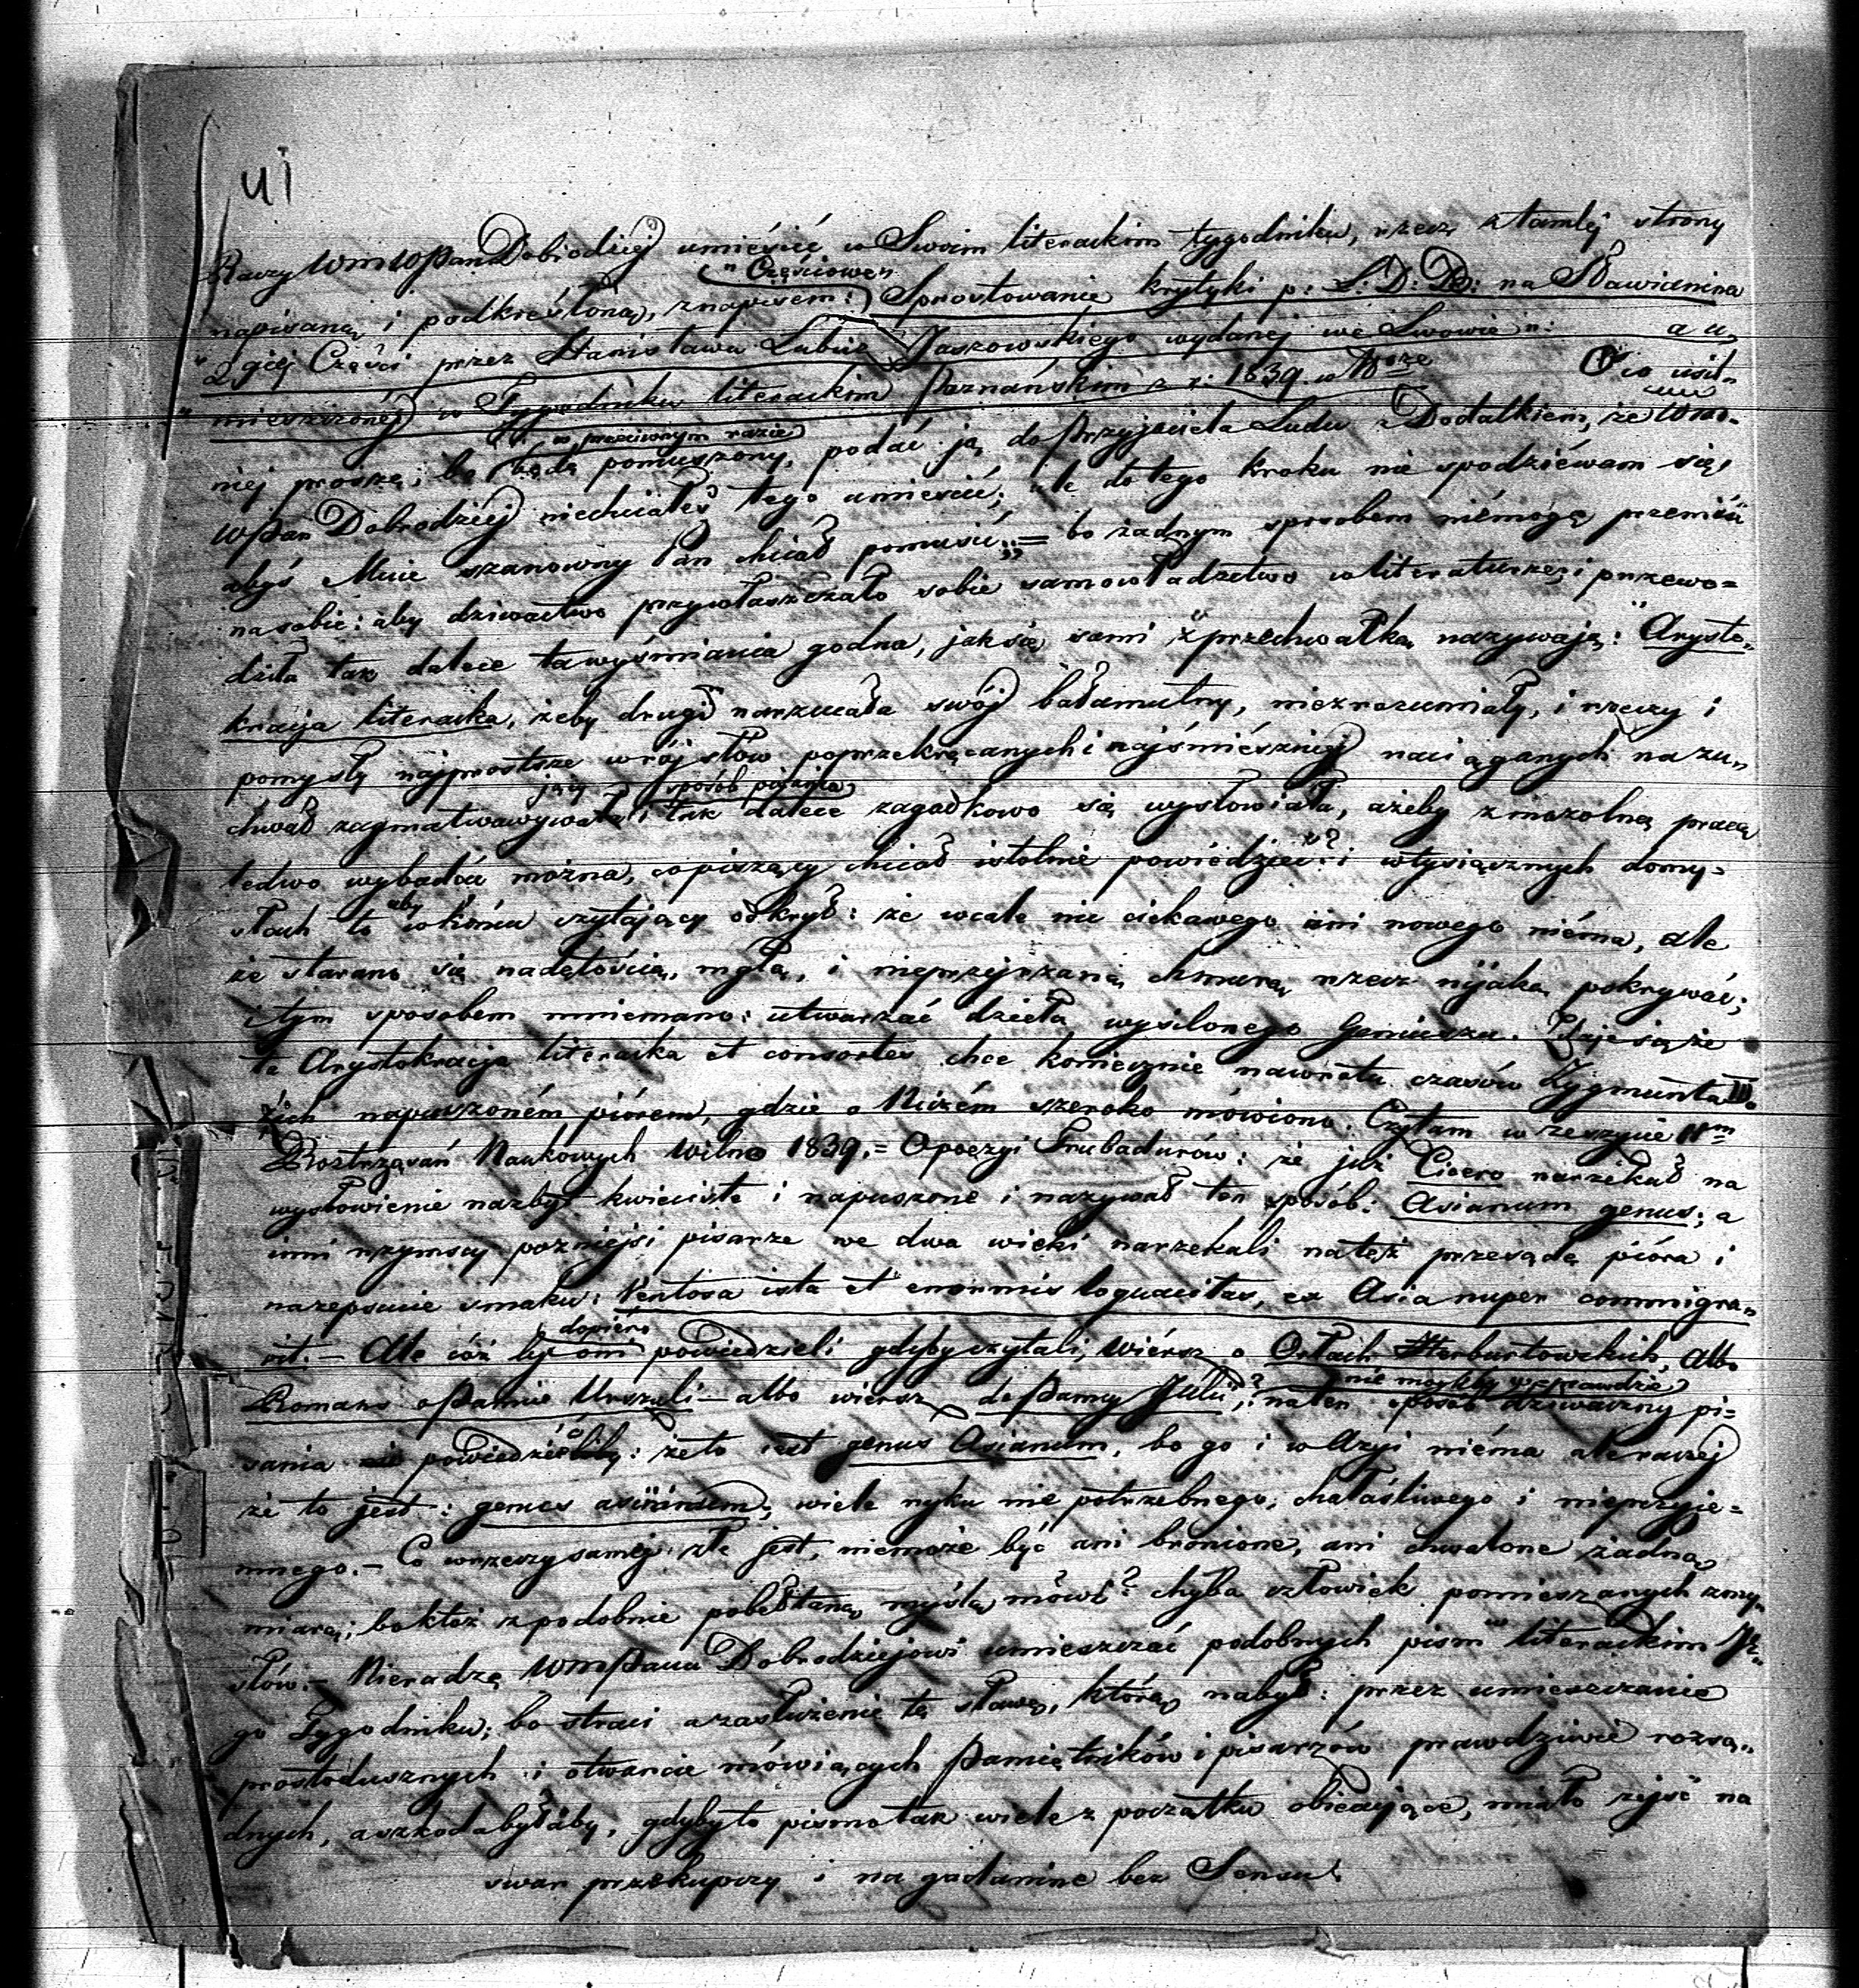 41
Raczy WMWPan Dobrodziej umieścić w Swoim literackim tygodniku, rzecz z tamtej strony
"Częściowe"
napisaną i podkreśloną, z napisem: Sprostowanie krytyki p: L: D: B: na Sławianina
"2giej Części przez Stanisława Jaszowskiego wydanej we Lwowie": a u„
"mieszczonéj w Tygodniku literackim Poznańskim z r: 1839. w Nrze O to usil„
w przeciwnym razie
niej proszę; bo będę pomuszony, podać ją do Przyjaciela Ludu z Dodatkiem, że WM
WPan Dobrodziéj niechciałeś tego umieścić; ale do tego kroku nie spodziéwam się,
abyś Mnie szanowny Pan chciał pomusić; = bo żadnym sposobem niémogę przenieść
na sobie: aby dziwactwo przywłaszczało sobie samowładztwo w literaturze, i przewo=
dziła tak dalece ta wyśmiania godna, jak się sami z przechwałką nazywają: "Arysto„
kracja literacka, żeby drugim narzucała swój bałamutny, niezrozumiały, i rzeczy i
pomysły najprostsze w rój słów poprzekręcanych i najśmiészniej naciąganych na zu„
jący sposób pisania
chwał zagmatwawywała i tak dalece zagadkowo się wysłowiała, ażeby z mozolną pracą
ledwo wybadać można, co piszący chciał istotnie powiedzieć? i w tysiącznych domy=
aby
słach to w końcu czytający odkrył: że wcale nic ciekawego ani nowego niéma, ale
że starano się nadętością, mgłą, i nieprzejrzaną chmurą rzecz nijaką pokrywać;
i tym sposobem mniemano: utwarzać dzieła wysilonego Geniuszu. Zdaje się że
ta Arystokracja literacka et consortes chce koniecznie nawrotu czasów Zygmunta III.
z ich napuszoném piórem, gdzie o Niczém szeroko mówiono. Czytam w zeszycie
Roztrząsań Naukowych Wilno 1839. = O poezyi Trubadurów: że już Cicero narzékał na
wysłowienie nazbyt kwieciste i napuszone i nazywał ten sposób: Asianum genus; a
inni rzymscy poźniejsi pisarze we dwa wieki narzekali na też przesadę pióra i
na zepsucie smaku: Ventosa ista et enormis loquacitas, ex Asia nuper commigra„
dopiéro
vit. – Ale cóż by oni powiedzieli gdyby czytali, wiérsz o Orłach Herburtowskich, albo
nie mogliby w prawdzie
Romans o Pannie Urszuli – albo wiersz do Panny Julii", ? na ten sposób dziwaczny pi=
sania powiedziéć: że to jest genus Asianum, bo go i w Azyi niéma ale raczej
że to jest: genus asininum, wiele ryku nie potrzebnego, hałaśliwego i nieprzyje=
mnego. – Co w rzeczy samej złe jest, niemoże być ani bronione, ani chwalone żadną
miarą; bo któż z podobnie pobełtaną myślą mówi? chyba człowiek pomieszanych zmy„
słów. – Nieradzę WMPanu Dobrodziejowi umieszczać podobnych pism w literackim Je„
go Tygodniku; bo straci zasłużenie tę sławę, którą nabył: przez umieszczanie
prostodusznych i otwarcie mówiących Pamiętników i pisarzów prawdziwie rozsą„
dnych, a szkoda byłaby, gdyby to pismo tak wiele z początku obiecujące, miało zejść na
swar przekupczy i na gadaninę bez Sensu.